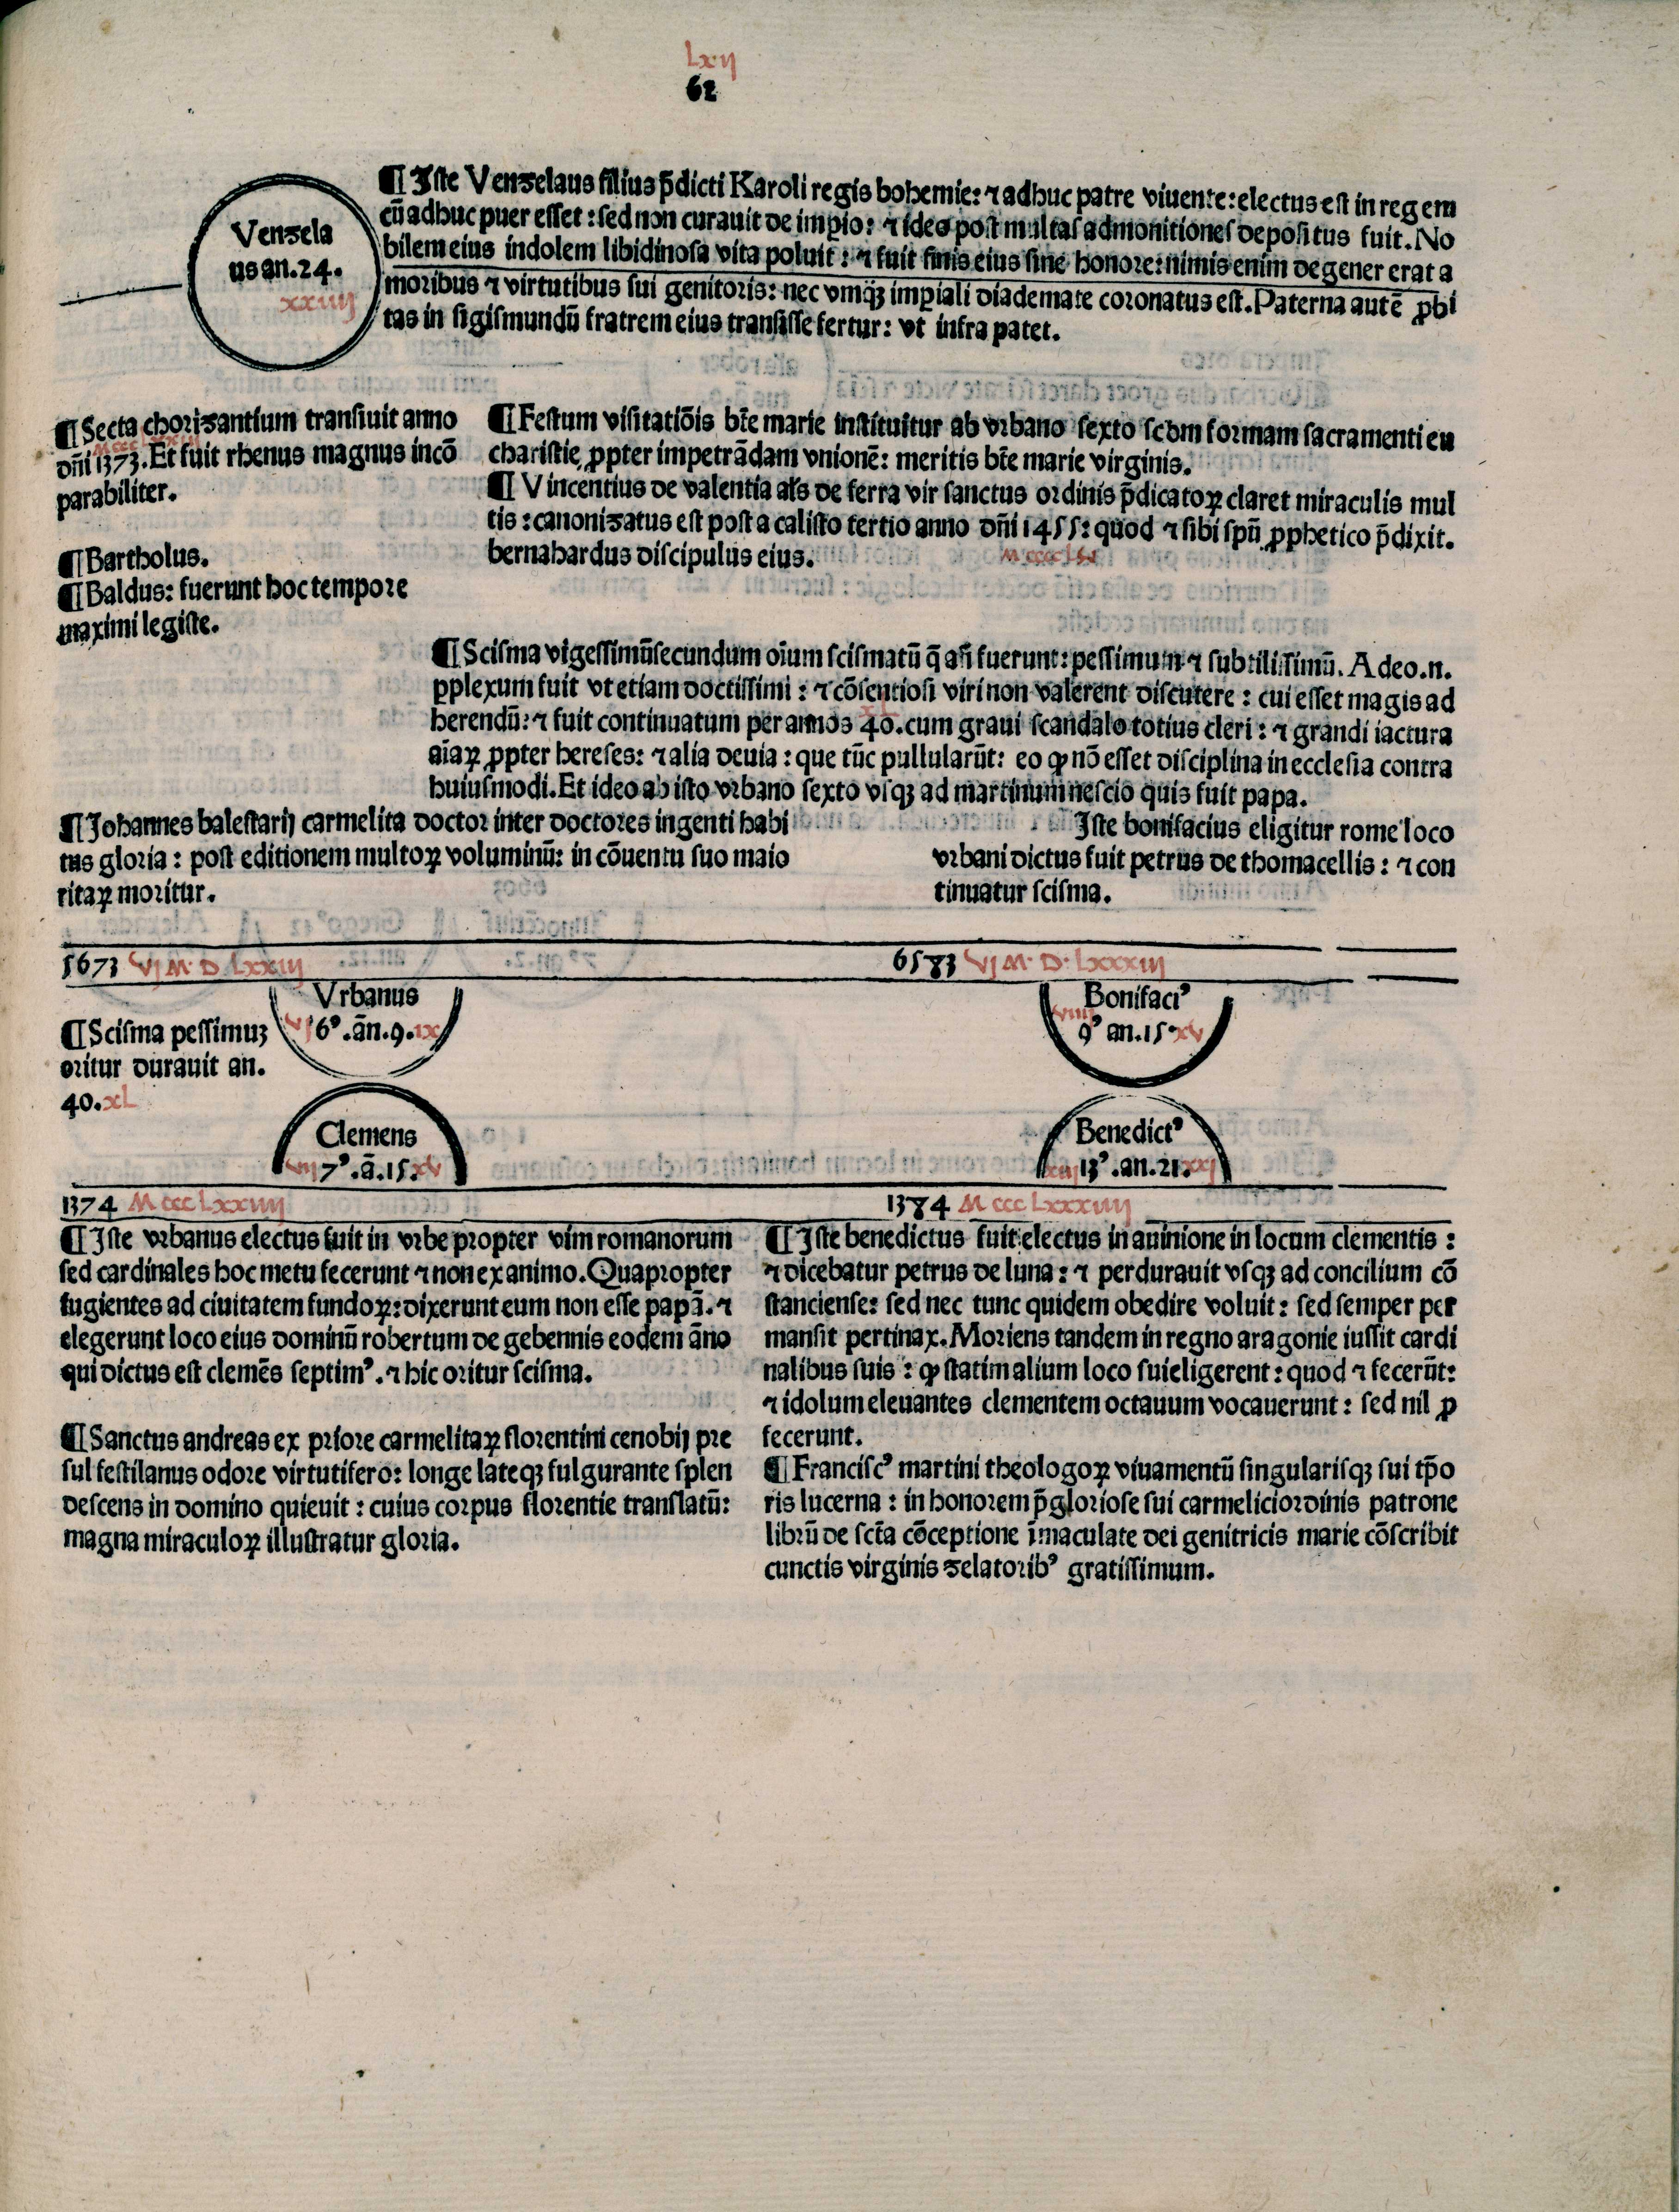 Lxij
62
Venzela
us an.24.
xxiiij
¶ Iste Venzelaus filius p̄dicti Karoli regis bohemie: ⁊ adhuc patre viuente: electus est in regem
cū adhuc puer esset: sed non curauit de imꝑio: ⁊ ideo post multas admonitiones depositus fuit. No
bilem eius indolem libidinosa vita poluit: ⁊ fuit finis eius sine honore: nimis enim degener erat a
moribus ⁊ virtutibus sui genitoris: nec vmq̄ꝫ imꝑiali diademate coronatus est. Paterna autē ꝓbi
tas in sigismundū fratrem eius transisse fertur: vt infra patet.
¶ Secta chorizantium transiuit anno
Mccclxxiij
dn̄i 1373. Et fuit rhenus magnus incō
parabiliter.
¶ Bartholus.
¶ Baldus: fuerunt hoc tempore
maximi legiste.
¶ Festum visitatiōis bt̄e marie instituitur ab vrbano sexto scdm formam sacramenti eu
charistie ꝓpter impetrādam vnionē: meritis bt̄e marie virginis.
¶ Vincentius de valentia al's de ferra vir sanctus ordinis p̄dicatoꝝ claret miraculis mul
tis: canonizatus est post a calisto tertio anno dn̄i 1455: quod ⁊ sibi spū ꝓphetico p̄dixit.
bernahardus discipulus eius.
Mcccclv
¶ Scisma vigessimūsecundum oīum scismatū q̄ an̄ fuerunt: pessimum ⁊ subtilissimū. Adeo.n.
ꝑplexum fuit vt etiam doctissimi: ⁊ cōsentiosi viri non valerent discutere: cui esset magis ad
xl
herendū: ⁊ fuit continuatum per annos 40. cum graui scandalo totius cleri: ⁊ grandi iactura
aīaꝝ ꝓpter hereses: ⁊ alia deuia: que tūc pullularūt: eo ꝙ nō esset disciplina in ecclesia contra
huiusmodi. Et ideo ab isto vrbano sexto vsqꝫ ad martinum nescio quis fuit papa.
¶ Johannes balestarij carmelita doctor inter doctores ingenti habi
tus gloria: post editionem multoꝝ voluminū: in cōuentu suo maio
ritaꝝ moritur.
Iste bonifacius eligitur rome loco
vrbani dictus fuit petrus de thomacellis: ⁊ con
tinuatur scisma.
5673 vj M. D Lxxiij
6583 vj M. D. Lxxxiij
¶ Scisma pessimuꝫ
oritur durauit an.
40. xL
Vrbanus
vj 6ꝰ. ān. 9. ix
Clemens
vij 7ꝰ. ā. 15. xv
Bonifaciꝰ
viiij
9ꝰ an. 15. xv
Benedictꝰ
xiij 13ꝰ. an. 21. xxj
1374 M ccc Lxxiiij
1384 M ccc Lxxxiiij
¶ Iste vrbanus electus fuit in vrbe propter vim romanorum
sed cardinales hoc metu fecerunt ⁊ non ex animo. Quapropter
fugientes ad ciuitatem fundoꝝ: dixerunt eum non esse papā. ⁊
elegerunt loco eius dominū robertum de gebennis eodem āno
qui dictus est clemēs septimꝰ. ⁊ hic oritur scisma.
¶ Sanctus andreas ex priore carmelitaꝝ florentini cenobij pre
sul festilanus odore virtutifero: longe lateqꝫ fulgurante splen
descens in domino quieuit: cuius corpus florentie translatū:
magna miraculoꝝ illustratur gloria.
¶ Iste benedictus fuit electus in auinione in locum clementis:
⁊ dicebatur petrus de luna: ⁊ perdurauit vsqꝫ ad concilium cō
stanciense: sed nec tunc quidem obedire voluit: sed semper per
mansit pertinax. Moriens tandem in regno aragonie iussit cardi
nalibus suis: ꝙ statim alium loco sui eligerent: quod ⁊ fecerūt:
⁊ idolum eleuantes clementem octauum vocauerunt: sed nil ꝓ
fecerunt.
¶ Franciscꝰ martini theologoꝝ viuamentū singularisqꝫ sui tp̄o
ris lucerna: in honorem p̄gloriose sui carmelici ordinis patrone
librū de sct̄a cōceptione īmaculate dei genitricis marie cōscribit
cunctis virginis zelatoribꝰ gratissimum.